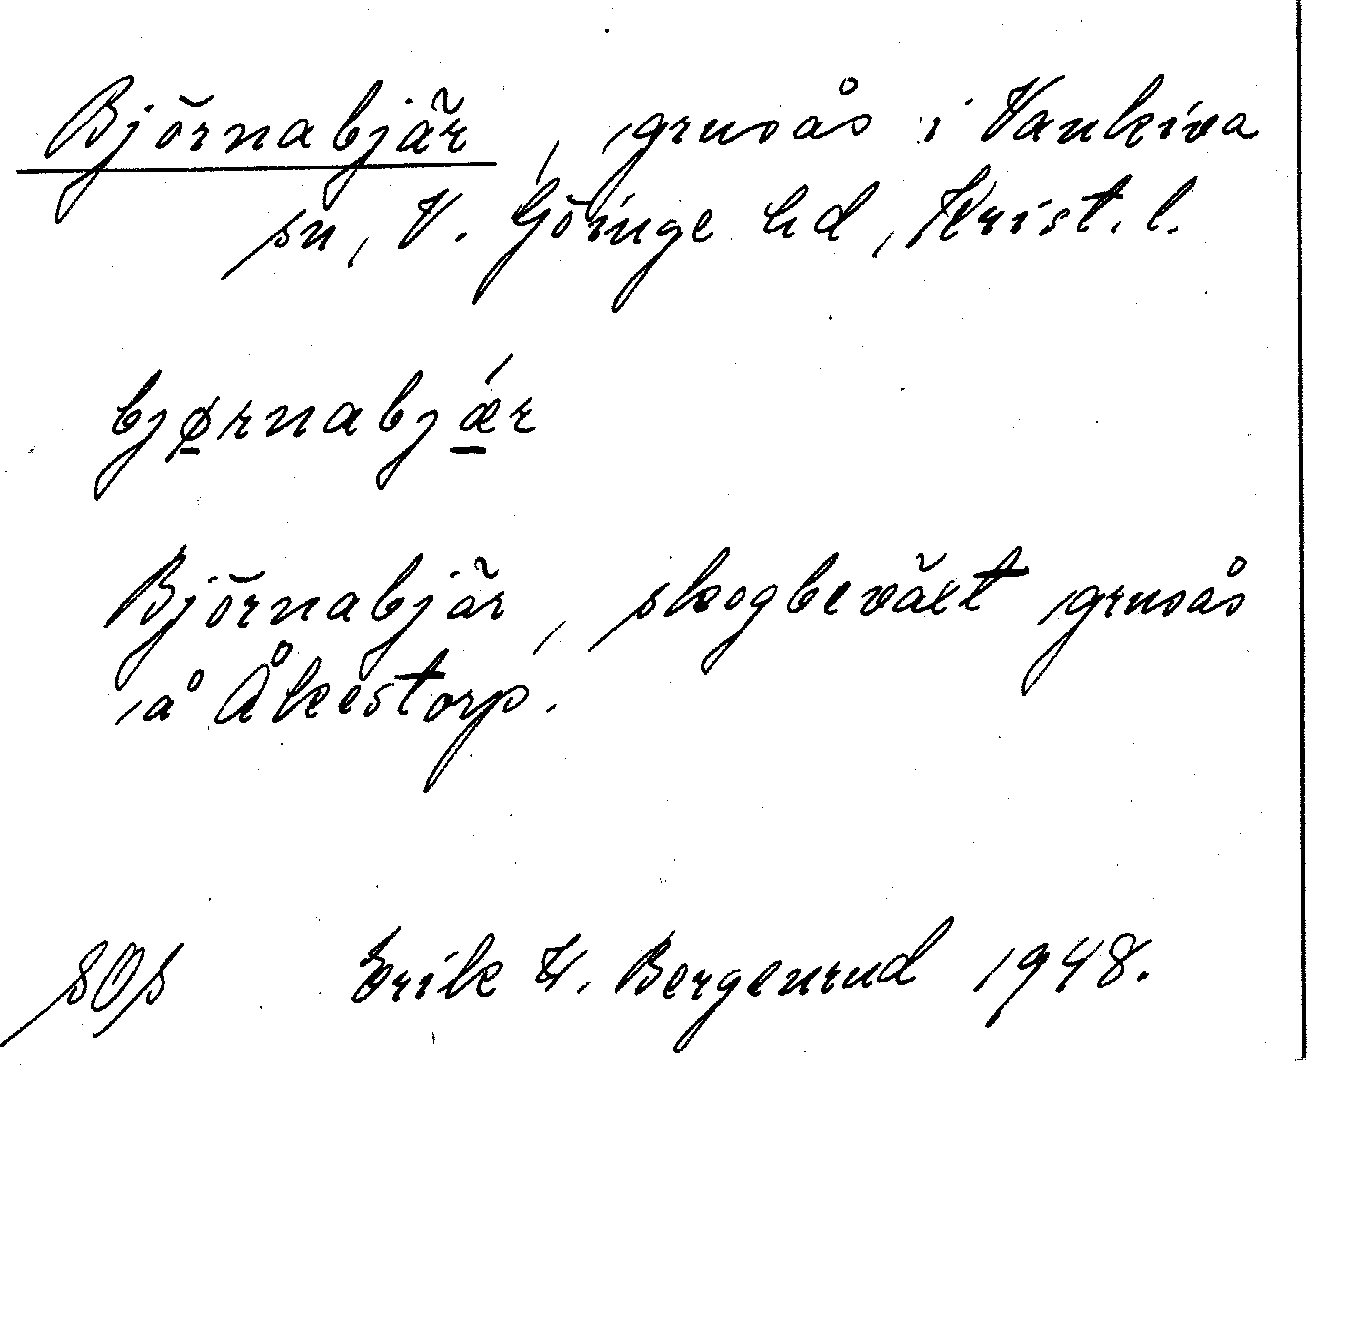 Björnabjär, grusås i Vankiva
sn, V. Göinge hd, Krist. l.
bjørnabjǽr
Björnabjär, skogbeväxt grusås
å Åkestorp.
SOS Erik W. Bergenrud 1948.